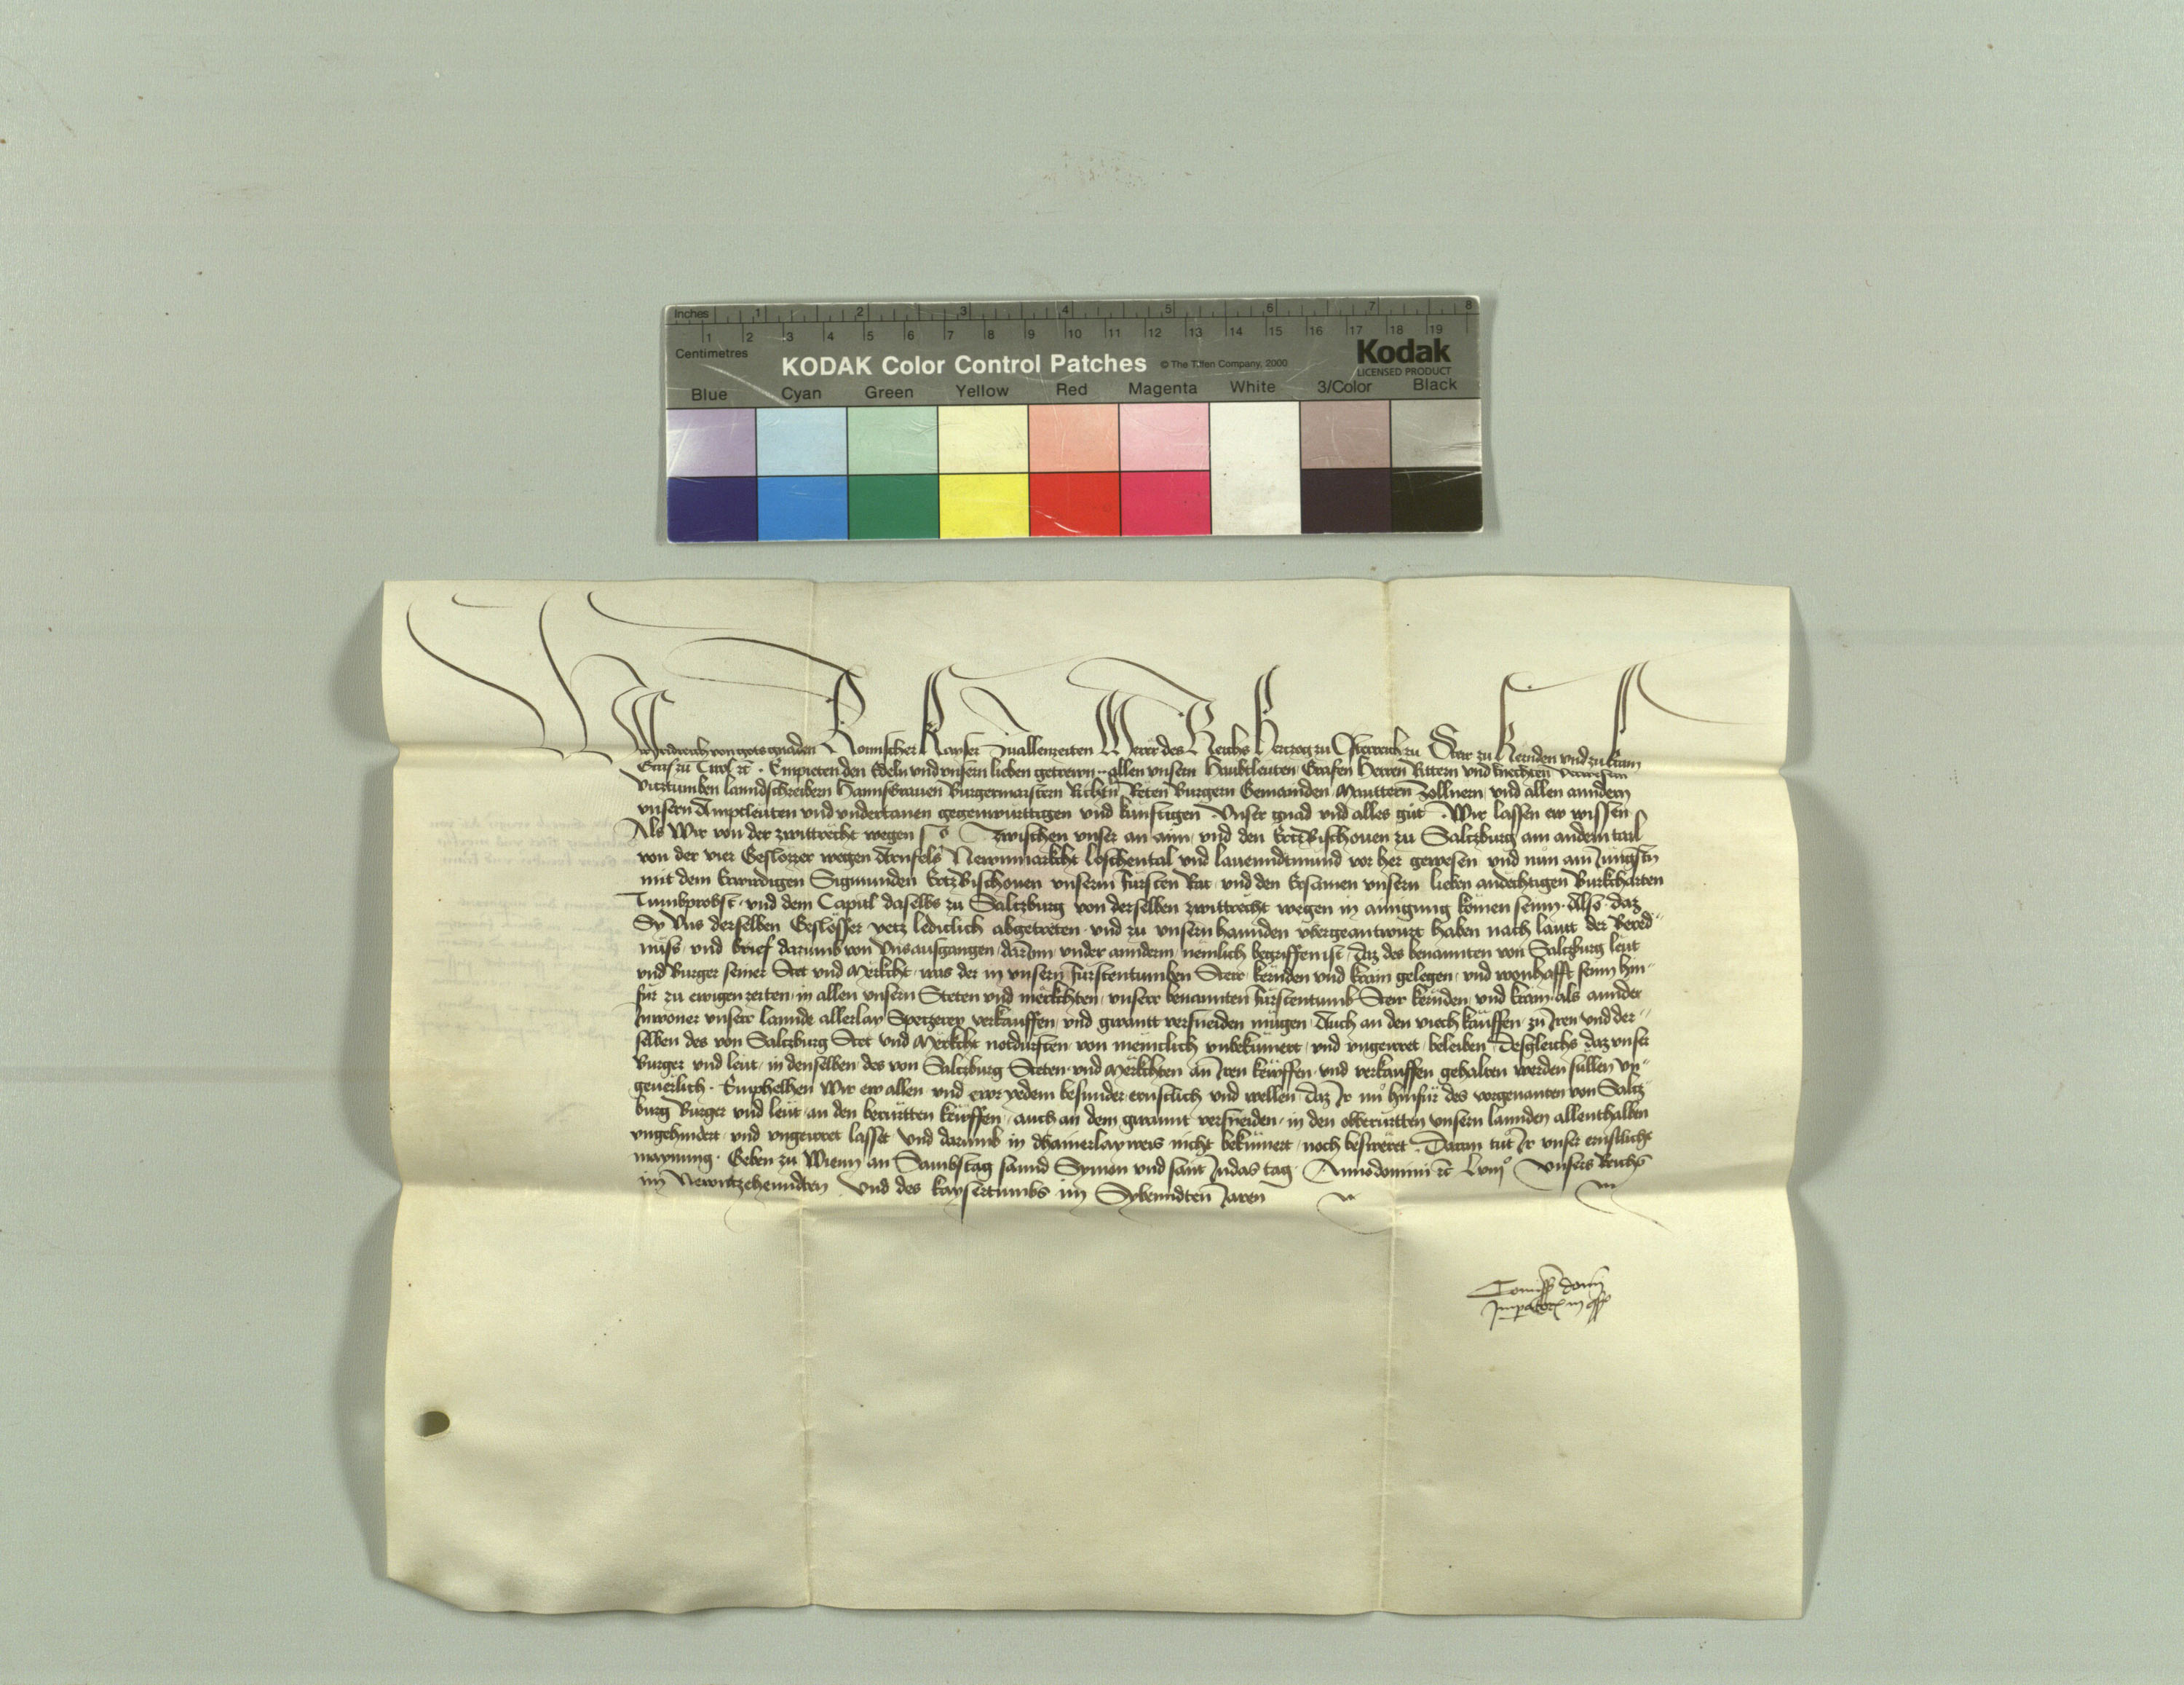 Inches 1 2 3 4 5 6 7 8
1 2 3 4 5 6 7 8 9 10 11 12 13 14 15 16 17 18 19
Centimetres
KODAK Color Control Patches © The Tiffen Company, 2000 Kodak
LICENSED PRODUCT
Blue Cyan Green Yellow Red Magenta White 3/Color Black
Wir Fridreich von gots gnaden Romischer Kayser Zuallenzeiten Merer des Reichs Hertzog zu Österreich zu Steir zu Kernden und zu Krain
Graf zu Tirol etc. Empieten den Edeln und unsern lieben getrewn allen unsern Haubtleuten Grafen Herren Rittern und knechten verwesern
Vitztumben lanndschreibern Hannsgrauen Burgermaistern Richtern Reten Burgern Gemainden Mauttern Zollnern und allen anndern
unsern Amptleuten und undertanen gegenwurttigen und kunftigen Unser gnad und alles gut. Wir lassen ew wissen
Als Wir von der zwittrecht wegen so zwischen unser an aim und den Ertzbischouen zu Saltzburg am andern tail
von der vier Geslözzer wegen Arnfels Newnmarkcht loschental und lauenndtmund vor her gewesen und nun am Jungstn
mit dem Erwirdigen Sigmunden Ertzbischouen unserm Fürsten Rat und den Ersamen unsern lieben andechtigen Burkcharten
Tumbprobst und dem Capitl daselbs zu Saltzburg von derselben zwittrecht wegen in ainigung komen seinn. Also daz
Sy Uns derselben Geslösser yetz lediclich abgetreten und zu unsern hannden ubergeantwurt haben nach lautt der Bered
nüss und brief darumb von Uns ausgangen darinn under annderm nemlich begriffen ist daz des benannten von Saltzburg leut
und Burger seiner Stet und Merkcht was der in unsern Fürstentumben Steir kernden und krain gelegen und wonhafft seinn hin
für zu ewigen zeiten in allen unsern Steten und merkchten unserr benannten Fürstentumb Steir kernden und krain als annder
Inwoner unserr lannde allerlay Spetzerey verkauffen und gwantt versneiden mügen Auch an den viech kauffen zu Iren und der
selben des von Saltzburg Stet und Merkcht notdurften von meniclich unbekümert und ungeirret beleiben Desgleichs daz unser
Burger und leut in denselben des von Saltzburg Steten und Merkchten an Iren kewffen und verkauffen gehalten werden süllen un
geuerlich. Emphelhen Wir ew allen und ewr yedem besunder ernstlich und wellen daz Ir nu hinfür des vorgenanten von Saltz
burg Burger und leut an den berurtten kewffen auch an dem gwannt versneiden in den obberurtten unsern lannden allenthalben
ungehindert und ungeirret lasset und darumb in dhainerlay weis nicht bekümert noch besweret. Daran tut Ir unser ernstliche
maynung. Geben zu Wienn an Sambstag sannd Symon und sant Judas tag. Anno domini etc Lviij° Unsers Reichs
im Newntzehenndten Und des kaysertumbs im Sybenndten Jaren
Comiss domi
Imperatoris in